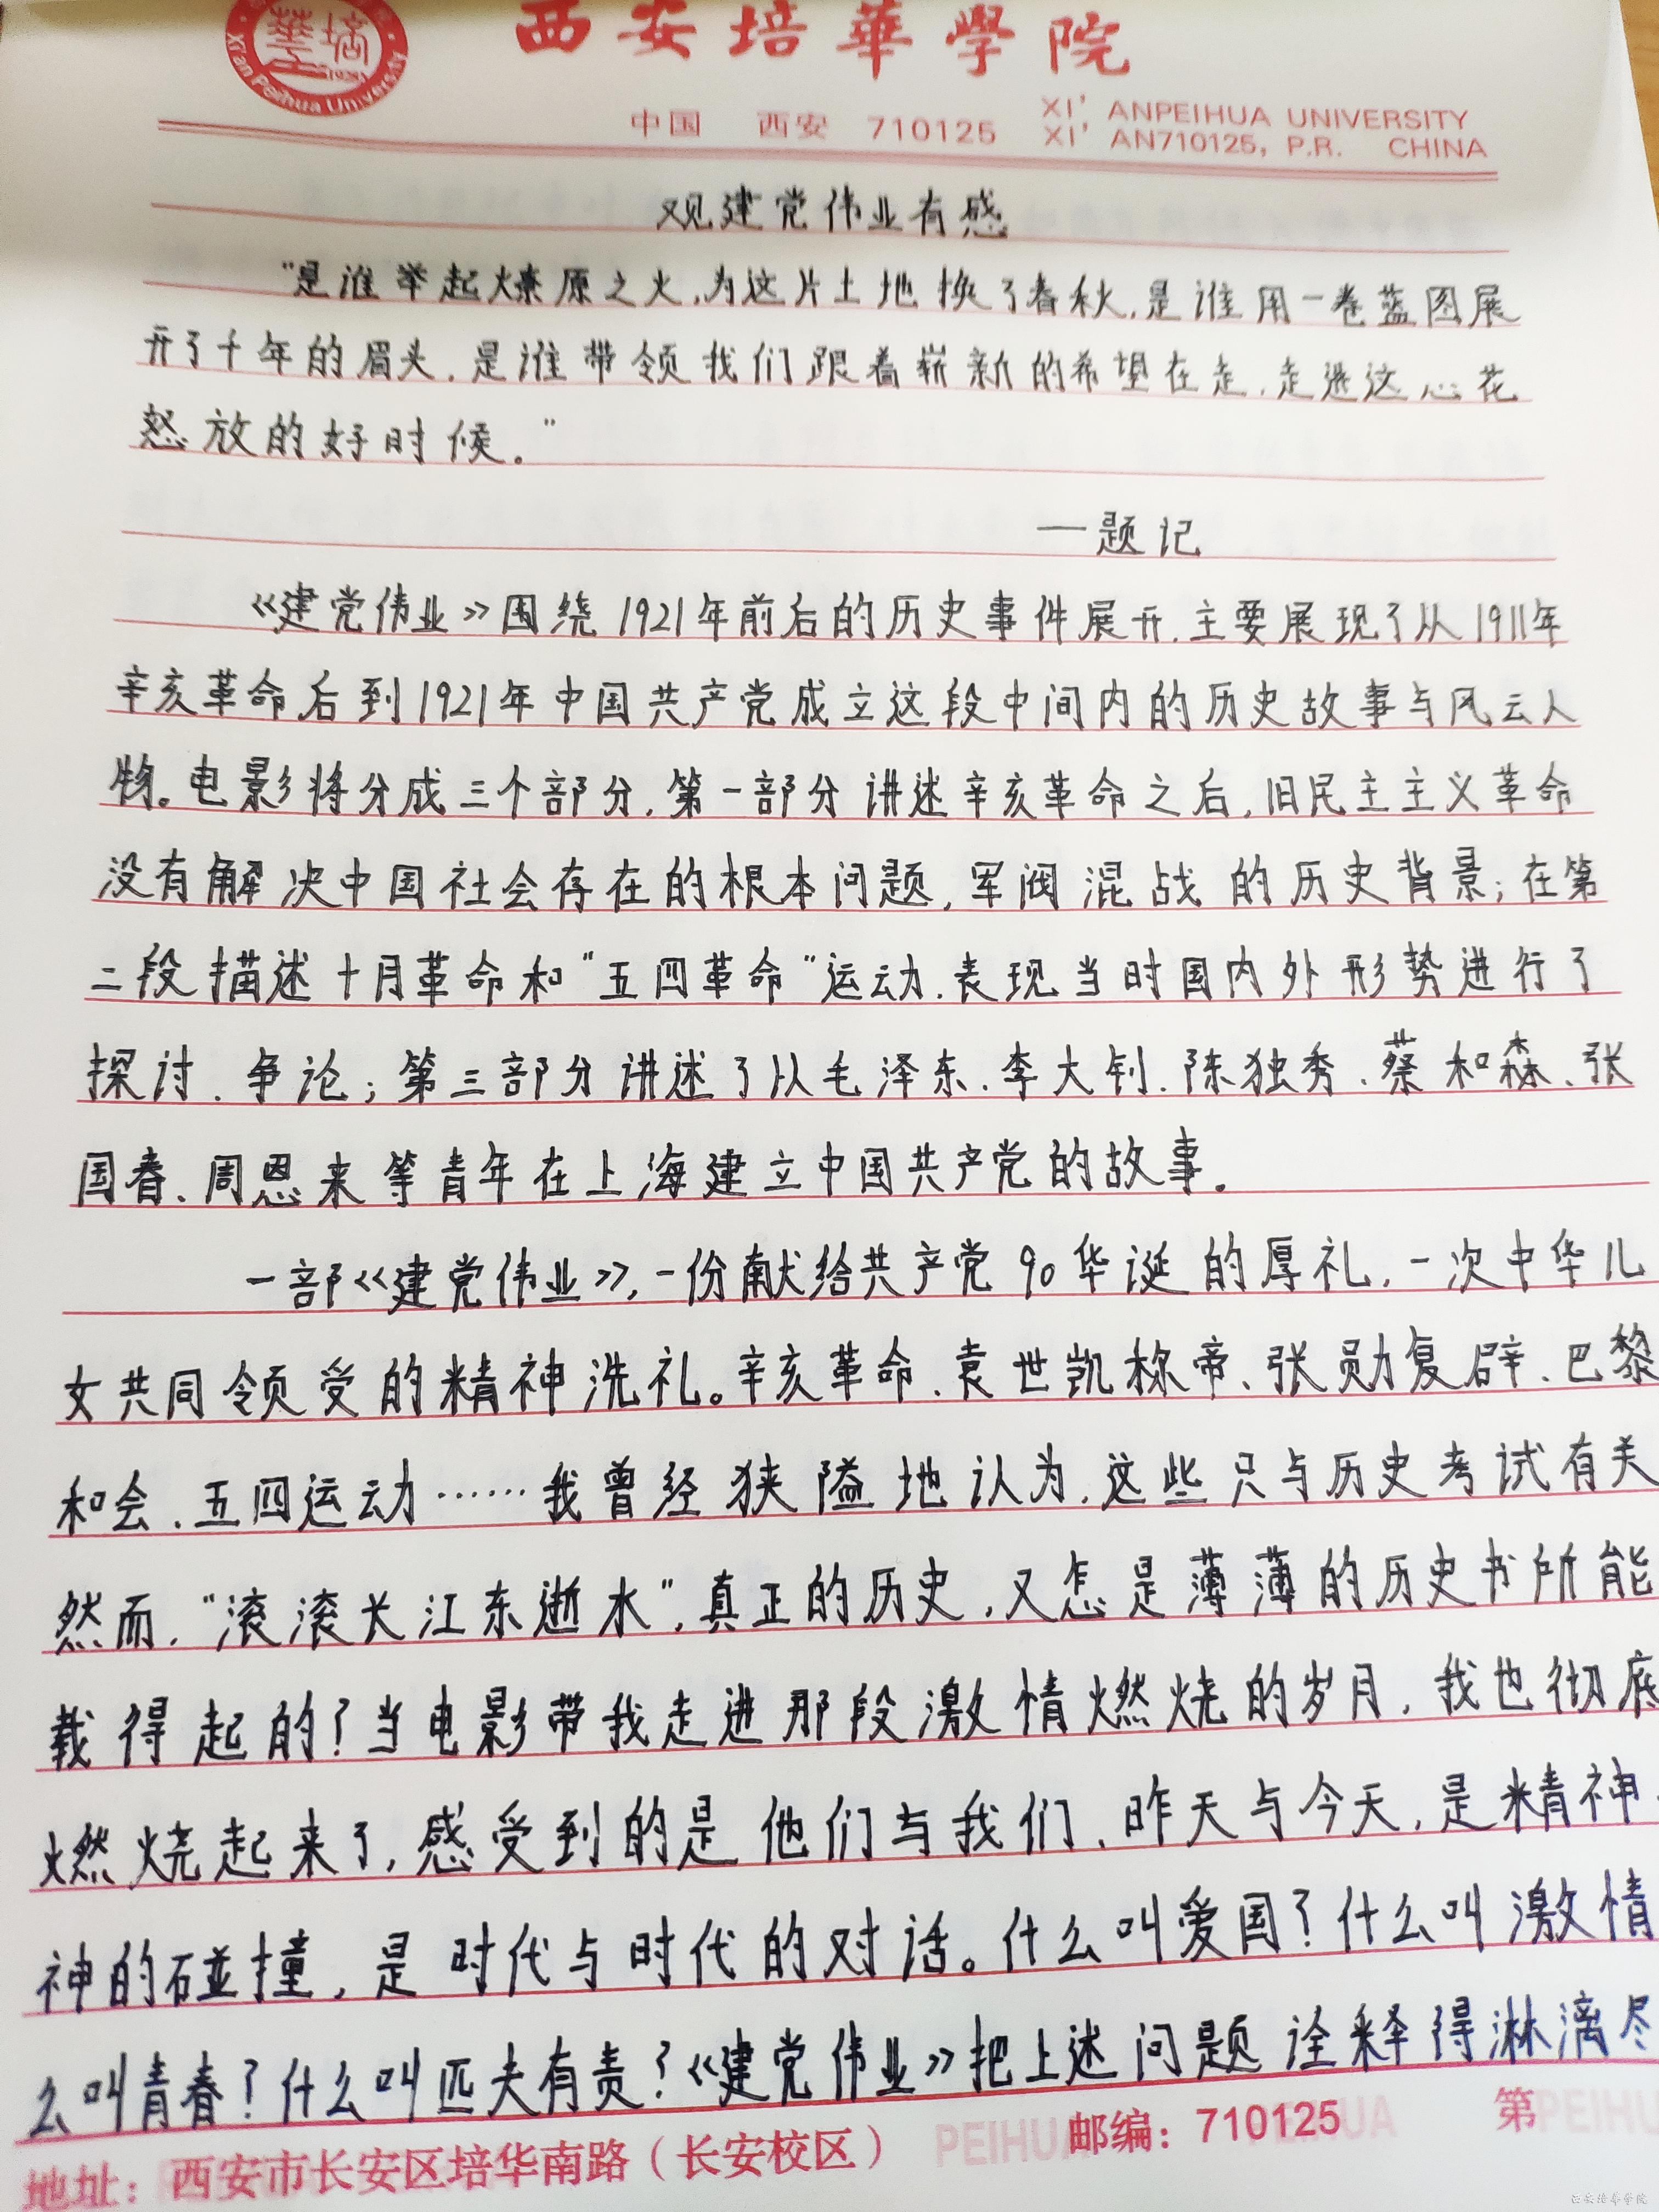 華培
1928
Xi'an Peihua University
西安培華學院
中国 西安 710125
XI' ANPEIHUA UNIVERSITY
XI' AN710125, P.R. CHINA
观建党伟业有感
“是谁举起燎原之火,为这片土地换了春秋,是谁用一卷蓝图展
开了千年的眉头,是谁带领我们跟着崭新的希望在走,走进这心花
怒放的好时候。”
—题记
《建党伟业》围绕1921年前后的历史事件展开,主要展现了从1911年
辛亥革命后到1921年中国共产党成立这段中间内的历史故事与风云人
物。电影将分成三个部分,第一部分讲述辛亥革命之后,旧民主主义革命
没有解决中国社会存在的根本问题,军阀混战的历史背景;在第
二段描述十月革命和“五四革命”运动,表现当时国内外形势进行了
探讨、争论;第三部分讲述了以毛泽东、李大钊、陈独秀、蔡和森、张
国春、周恩来等青年在上海建立中国共产党的故事。
一部《建党伟业》,一份献给共产党90华诞的厚礼,一次中华儿
女共同领受的精神洗礼。辛亥革命、袁世凯称帝、张勋复辟、巴黎
和会、五四运动……我曾经狭隘地认为,这些只与历史考试有关
然而,“滚滚长江东逝水”,真正的历史,又怎是薄薄的历史书所能
载得起的?当电影带我走进那段激情燃烧的岁月,我也彻底
燃烧起来了,感受到的是他们与我们、昨天与今天,是精神
神的碰撞,是时代与时代的对话。什么叫爱国?什么叫激情
么叫青春?什么叫匹夫有责?《建党伟业》把上述问题诠释得淋漓尽
地址:西安市长安区培华南路(长安校区) 邮编:710125 第
PEIHUA PEIHUA PEIHU
西安培華学院